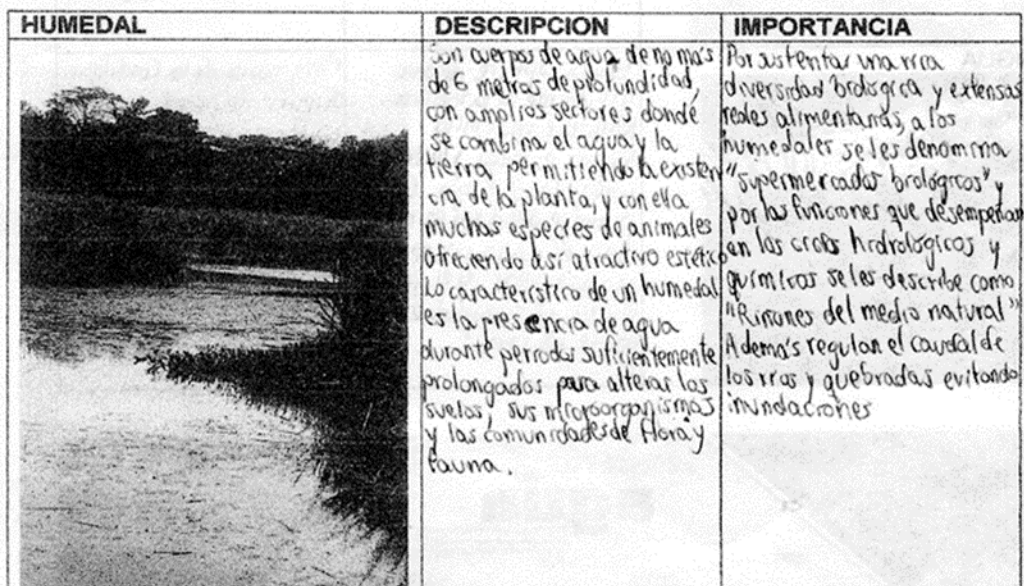 HUMEDAL
DESCRIPCION
Son cuerpos de agua de no más
de 6 metros de profundidad,
con amplios sectores donde
se combina el agua y la
tierra permitiendo la existen
cia de la planta, y con ella
muchas especies de animales
ofreciendo así atractivo estético
Lo característico de un humedal
es la presencia de agua
durante periodos suficientemente
prolongados para alterar los
suelos, sus microorganismos
y las comunidades de flora y
fauna.
IMPORTANCIA
Por sustentar una rica
diversidad biológica y extensas
redes alimentarias, a los
humedales se les denomina
"supermercados biológicos" y
por las funciones que desempeñan
en los ciclos hidrológicos y
químicos se les describe como
"Riñones del medio natural"
Además regulan el caudal de
los ríos y quebradas evitando
inundaciones